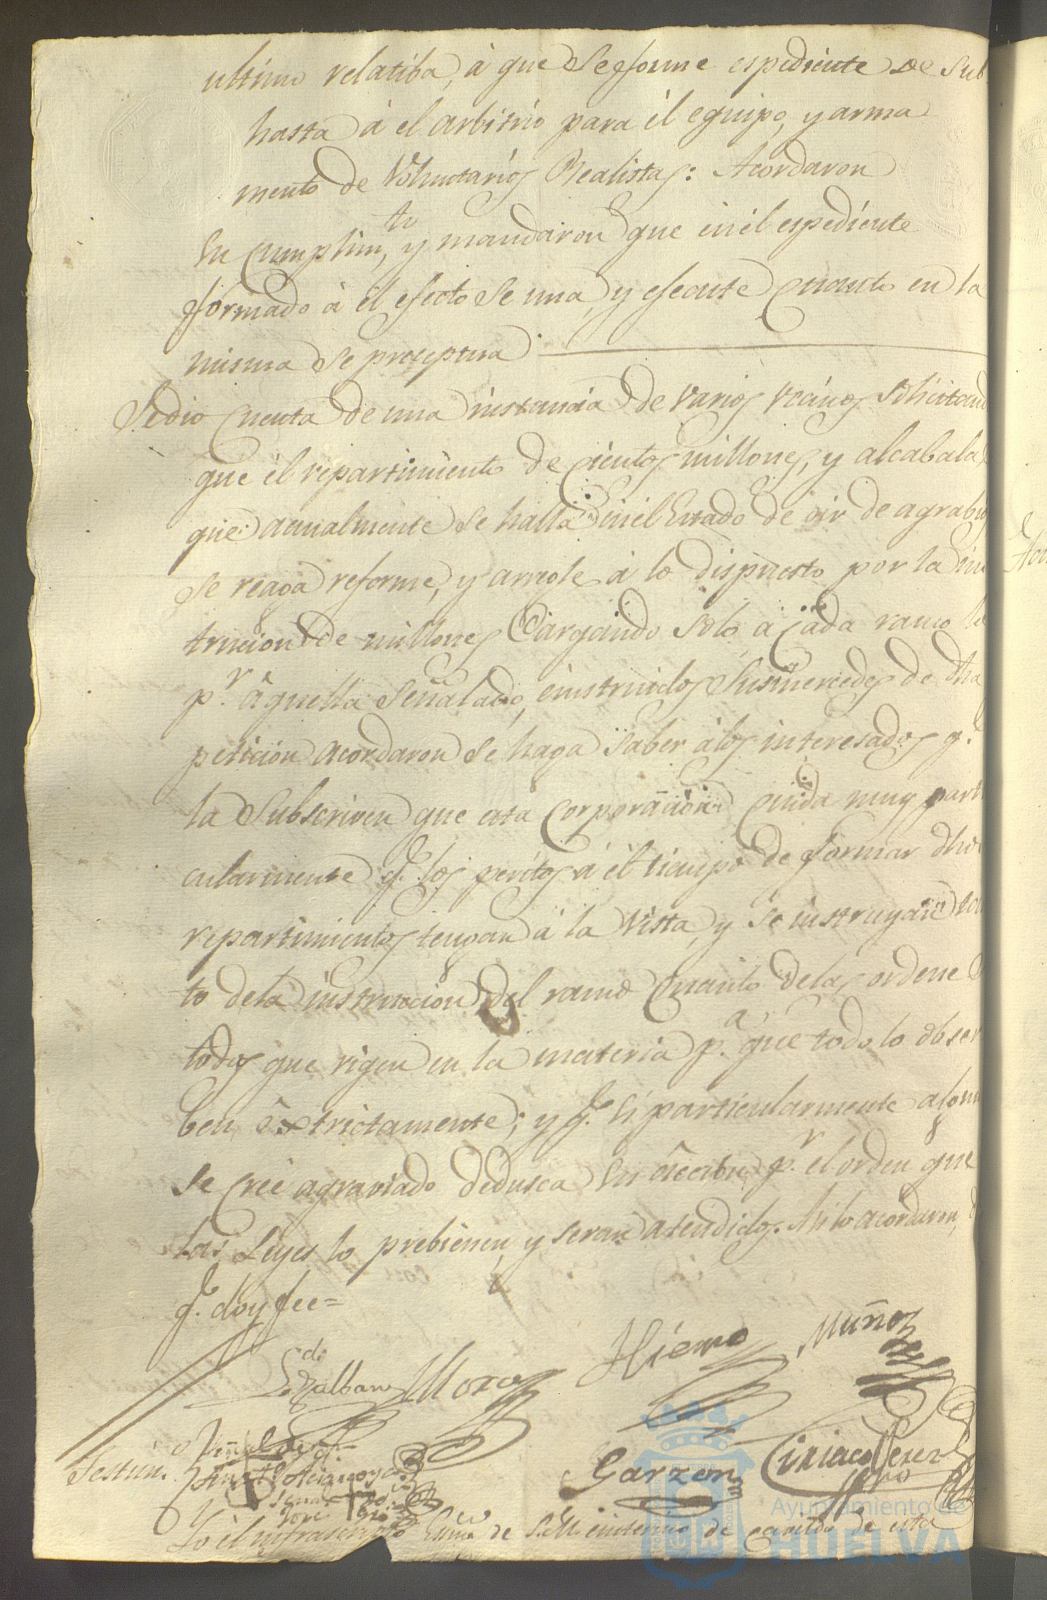 ultimo relatiba, á que se forme espediente de sub
hasta á el arbitrio para el equipo, y arma
mento de Voluntarios Realistas: Acordaron
su cumplimto, y mandaron que en el espediente
formado á el efecto se una, y efecute quanto en la
misma se preceptua
Se dio cuenta de una instancia de varios vecinos solicitand
que el repartimiento de cientos, millones, y alcabala
que actualmente se halla en el Estado de oir de agrabios
se reaga reforme, y arregle á lo dispuesto por la ins
truccion de millones Cargando solo á cada ramo lo
pr. aquella señalado, einstruidos sus mercedes de dha
peticion acordaron se haga saber á los interesados q.
la Subscriven que esta Corporacion cuida muy parti
cularmente q. los peritos á el tiempo de formar dhos
repartimientos tengan á la vista, y se instruyan tan
to de la instruccion del ramo quanto de las ordene
todas que rigen en la materia pa. que todo lo obser
ben extrictamente; y q. si particularmente alguno
se cree agraviado dedusca su accion pr. el orden que
las Leyes lo prebienen, y seran atendidos. Asi lo acordaron, d
q. doy fee=
Ldo. Zalbano Moro Hierro Muñoz
Señal de
Testim.
Garzon Ciriaco
señal
Jose
Yo el infrascripto Essno de S.M. enterino de cavildo de esta
Ayuntamiento de
HUELVA